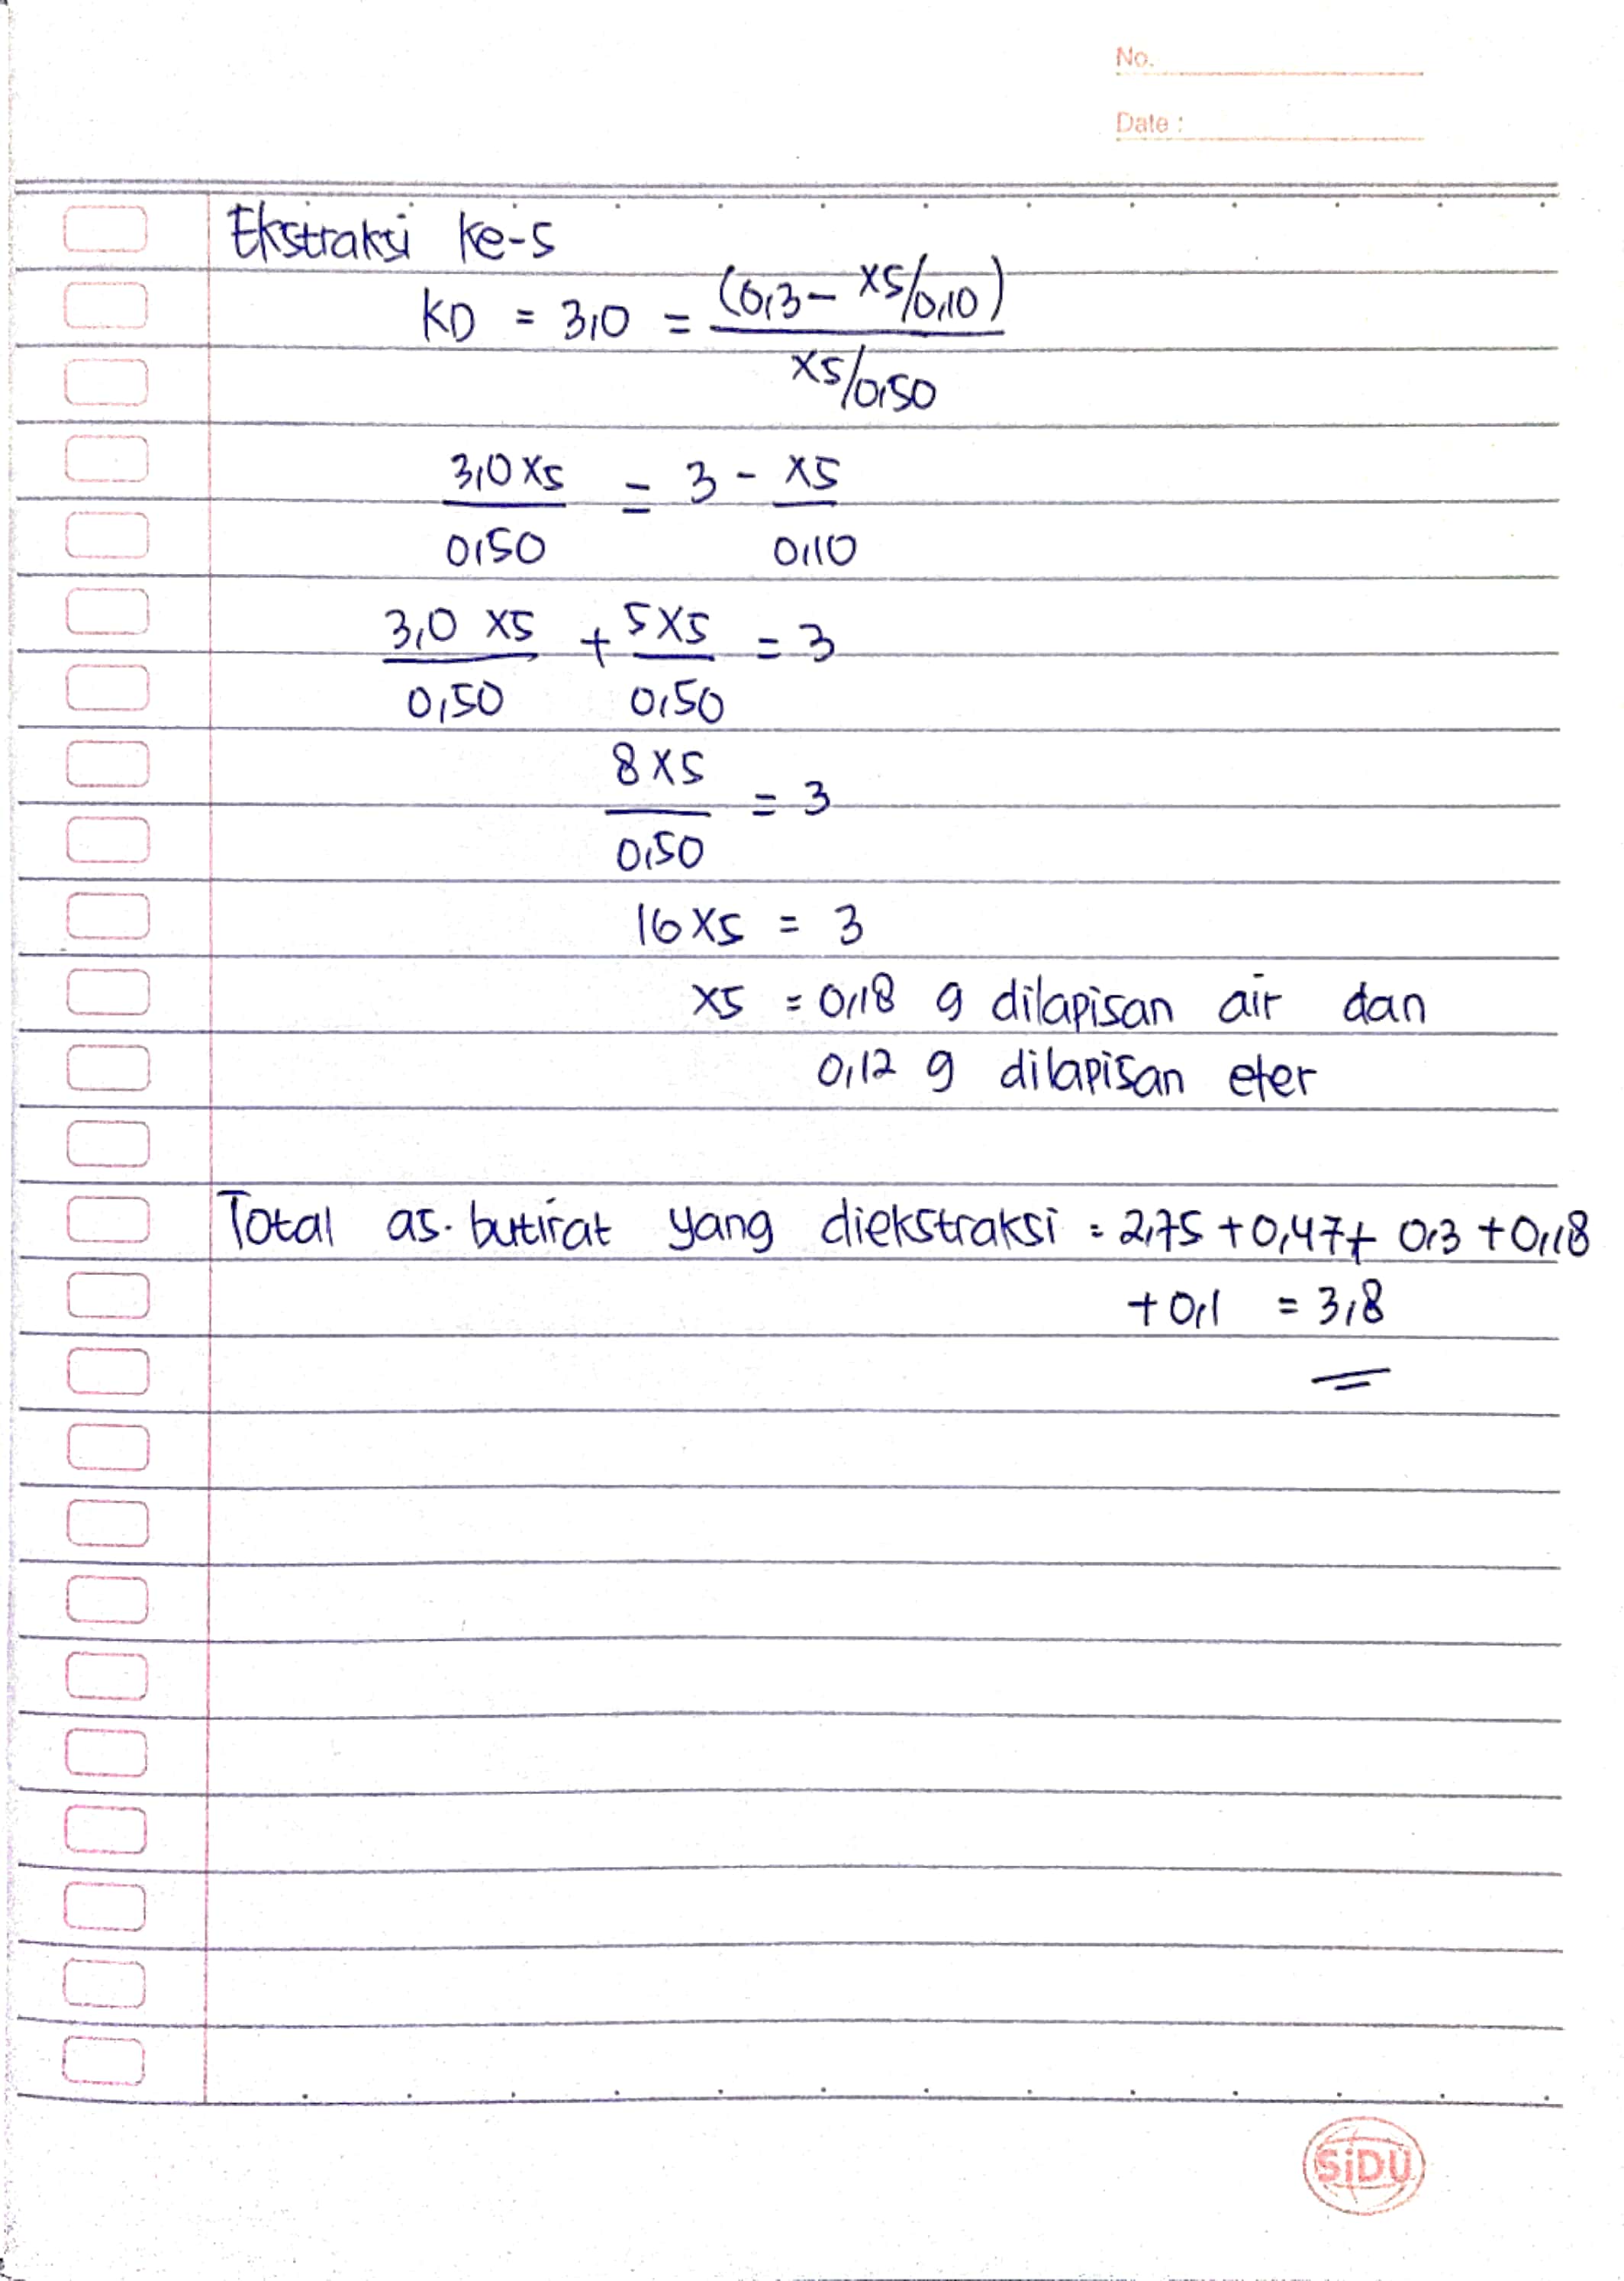 No.
Date :
Ekstraksi ke-5
KD = 3,0 = (0,3 - x5/0,10) / x5/0,50
3,0 x5 / 0,50 = 3 - x5 / 0,10
3,0 x5 / 0,50 + 5 x5 / 0,50 = 3
8 x5 / 0,50 = 3
16 x5 = 3
x5 = 0,18 g dilapisan air dan
0,12 g dilapisan eter
Total as. butirat yang diekstraksi = 2,75 + 0,47 + 0,3 + 0,18
+ 0,1 = 3,8
SiDU